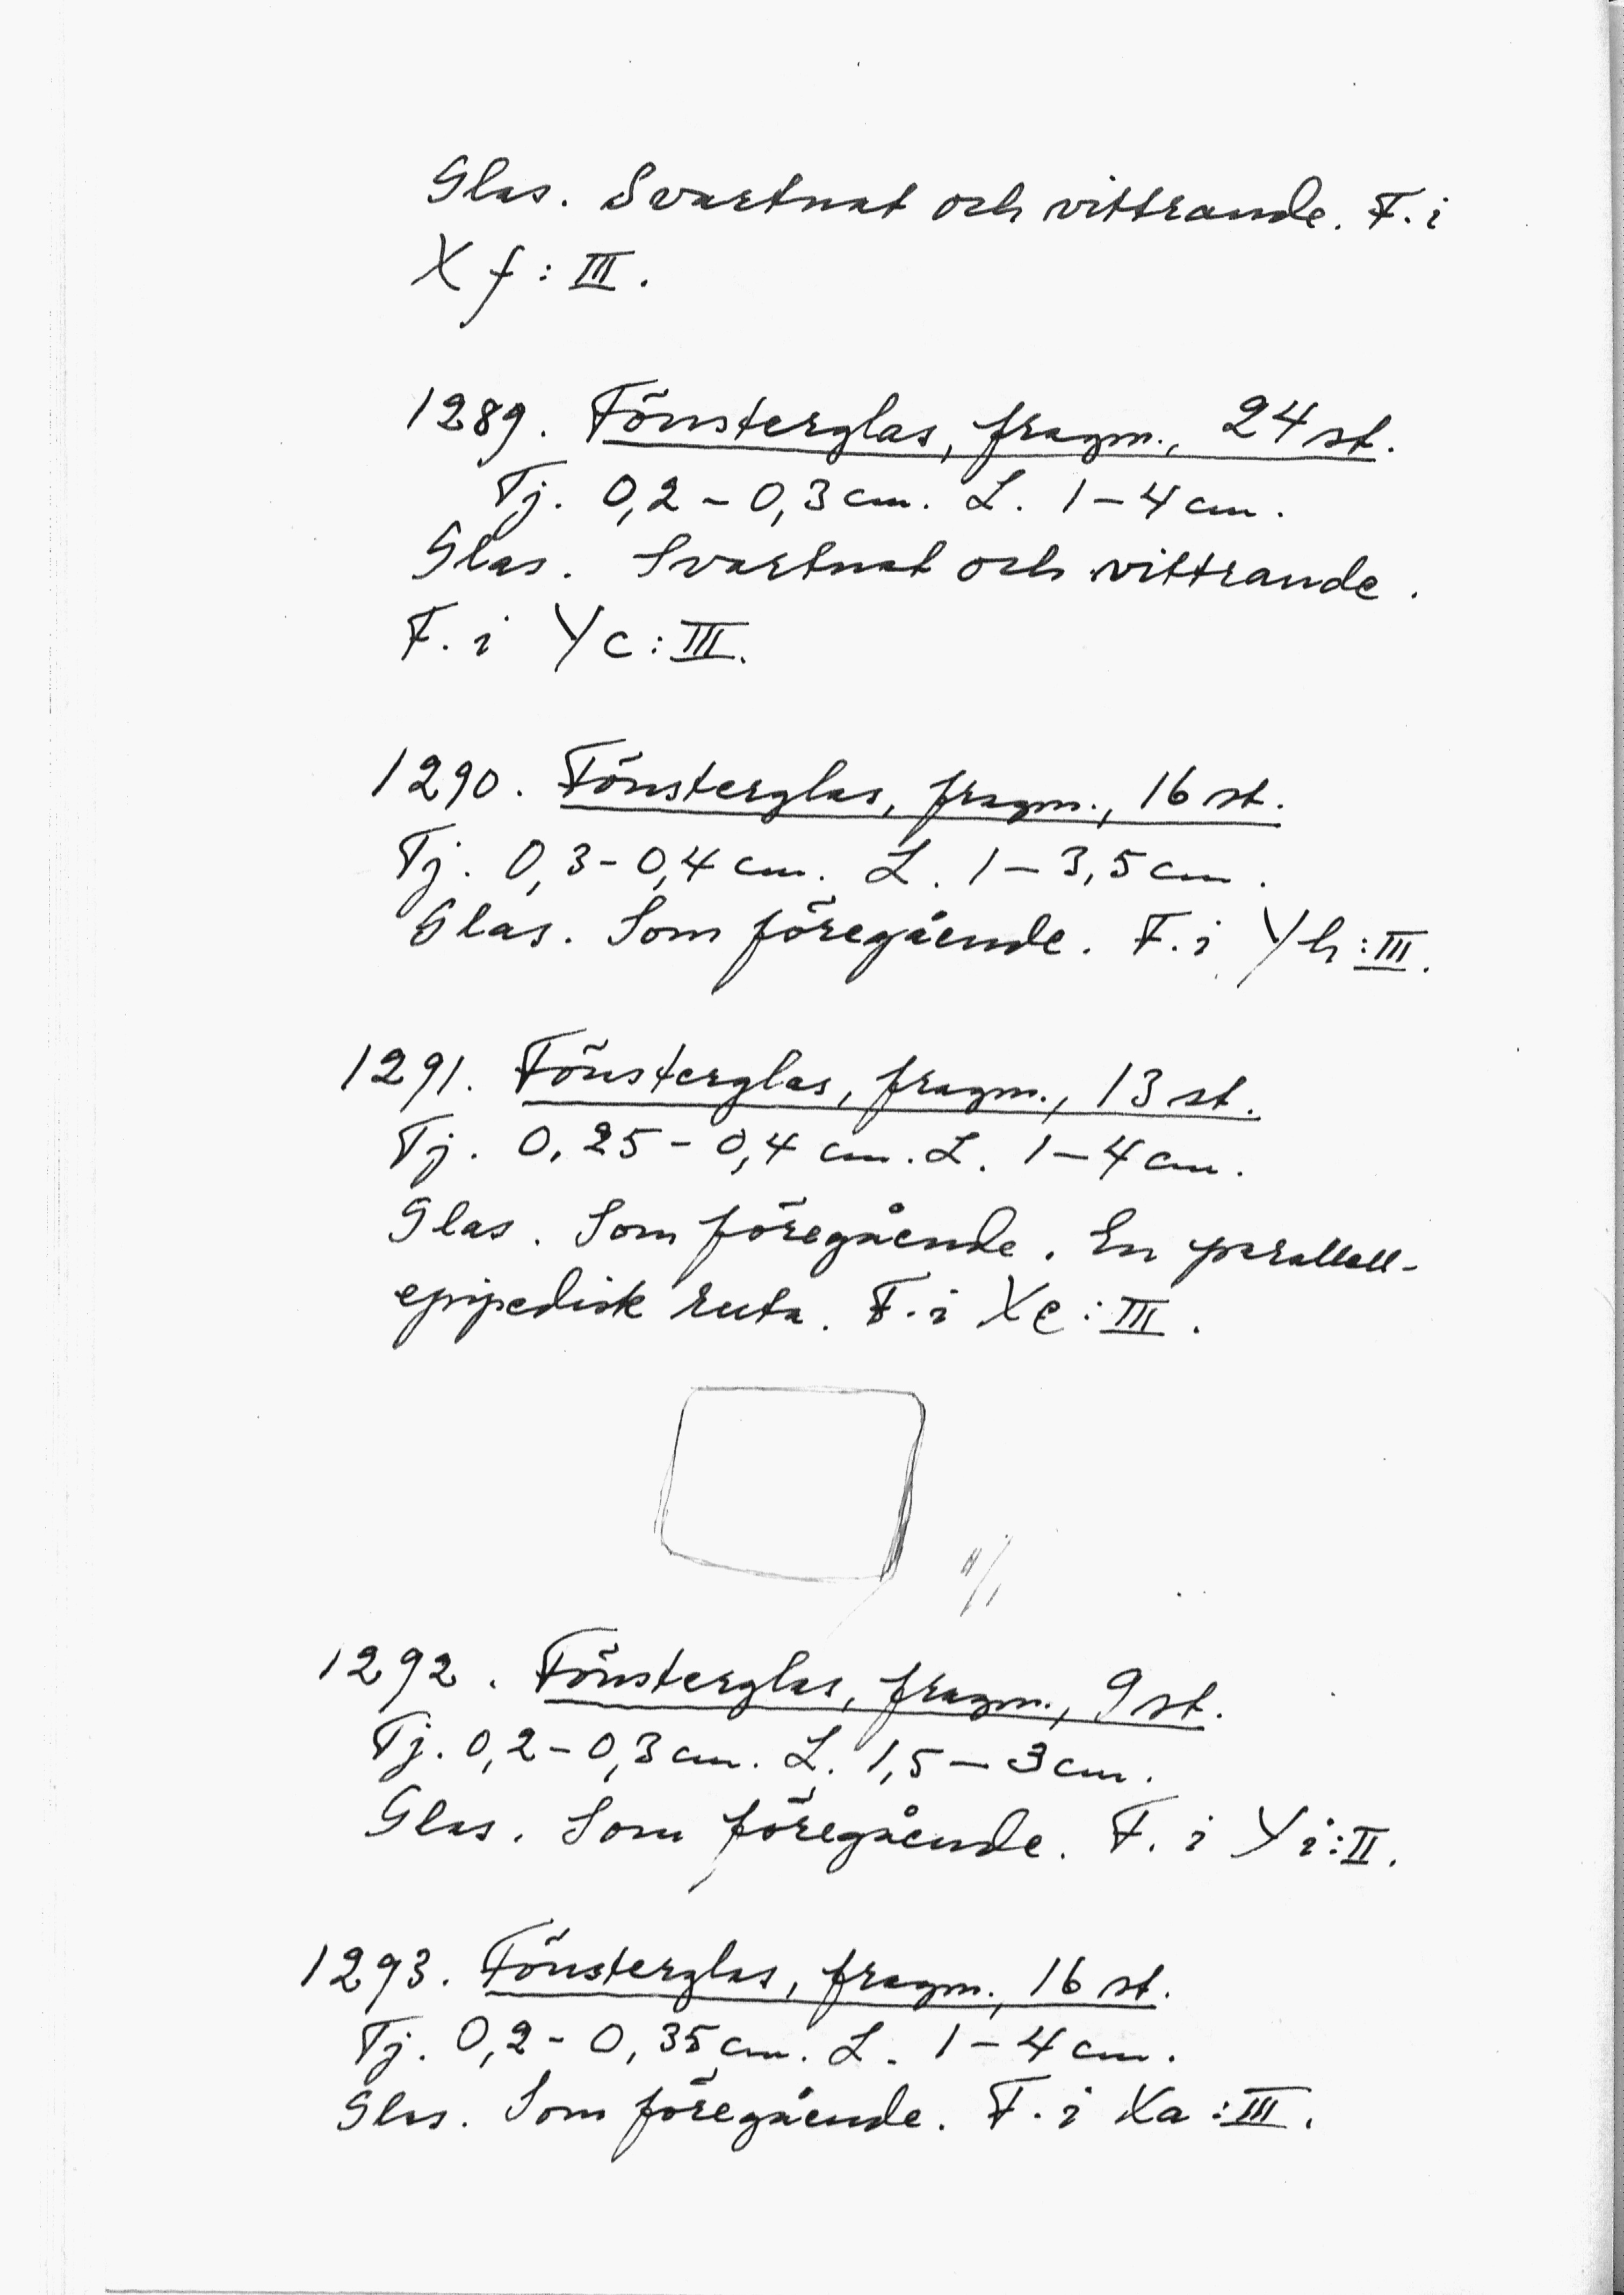 Glas. Svartnat och vittrande. F. i
X f : III.
1289. Fönsterglas, fragm., 24 st.
Tj. 0,2 – 0,3 cm. L. 1 – 4 cm.
Glas. Svartnat och vittrande.
F. i Y c : III.
1290. Fönsterglas, fragm., 16 st.
Tj. 0,3 – 0,4 cm. L. 1 – 3,5 cm.
Glas. Som föregående. F. i Y h : III.
1291. Fönsterglas, fragm., 13 st.
Tj. 0,25 – 0,4 cm. L. 1 – 4 cm.
Glas. Som föregående. En parallell-
epipedisk ruta. F. i X e : III.
1/1
1292. Fönsterglas, fragm., 9 st.
Tj. 0,2 – 0,3 cm. L. 1,5 – 3 cm.
Glas. Som föregående. F. i Y i : II.
1293. Fönsterglas, fragm., 16 st.
Tj. 0,2 – 0,35 cm. L. 1 – 4 cm.
Glas. Som föregående. F. i Xa : III.